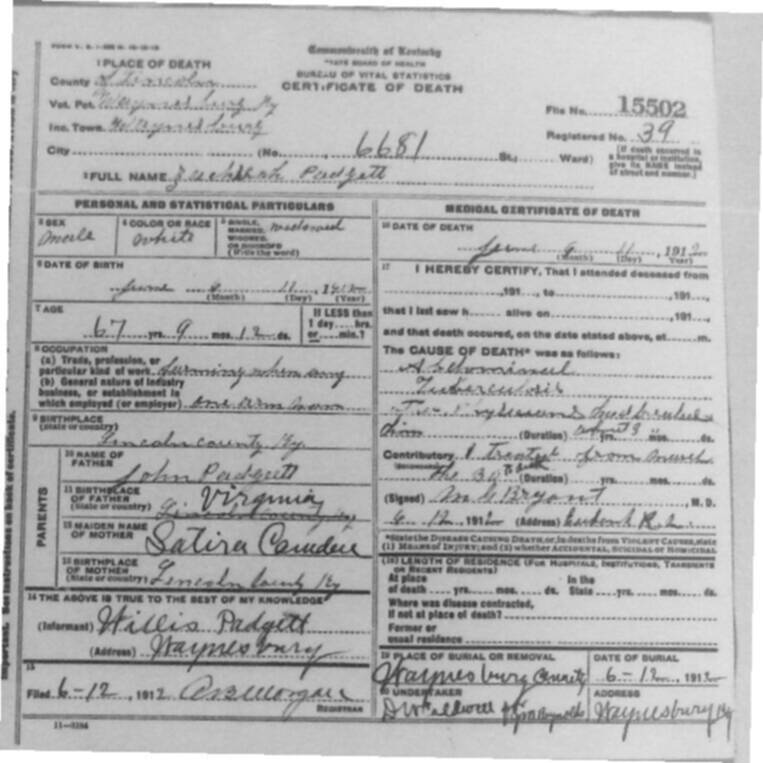 Commonwealth of Kentucky
STATE BOARD OF HEALTH
BUREAU OF VITAL STATISTICS
CERTIFICATE OF DEATH
1 PLACE OF DEATH
County Lincoln
Vot. Pct. Waynesburg Ky
Inc. Town Waynesburg
City (No. 6681 St.; Ward)
File No. 15502
Registered No. 39
[If death occurred in a hospital or institution, give its NAME instead of street and number.]
2 FULL NAME Padgett
PERSONAL AND STATISTICAL PARTICULARS
3 SEX
male
4 COLOR OR RACE
white
5 SINGLE, MARRIED, WIDOWED, OR DIVORCED
(Write the word)
widowed
6 DATE OF BIRTH
June 11, 1912
(Month) (Day) (Year)
7 AGE
67 yrs. 9 mos. 12 ds.
If LESS than
1 day....hrs.
or....min.?
8 OCCUPATION
(a) Trade, profession, or
particular kind of work farming when
(b) General nature of industry
business, or establishment in
which employed (or employer) one arm man
9 BIRTHPLACE
(State or country)
Lincoln county Ky
PARENTS
10 NAME OF
FATHER
John Padgett
11 BIRTHPLACE
OF FATHER
(State or country)
Virginia
12 MAIDEN NAME
OF MOTHER
Satira Camden
13 BIRTHPLACE
OF MOTHER
(State or country) Lincoln County Ky
14 THE ABOVE IS TRUE TO THE BEST OF MY KNOWLEDGE
(Informant) Willis Padgett
(Address) Waynesburg
15
Filed 6-12, 1912 Morgan
REGISTRAR
11-3184
MEDICAL CERTIFICATE OF DEATH
16 DATE OF DEATH
June 11, 1912
(Month) (Day) (Year)
17 I HEREBY CERTIFY, That I attended deceased from
,191 , to ,191 ,
that I last saw h alive on ,191 ,
and that death occured, on the date stated above, at m.
The CAUSE OF DEATH* was as follows:
Abdominal
Tuberculosis
(Duration) yrs. mos. ds.
Contributory I treated from march
the 30 (Duration) yrs. mos. ds.
(Signed) Bryant M. D.
6 12, 1912 (Address)
*State the DISEASE CAUSING DEATH, or, in deaths from VIOLENT CAUSES, state
(1) MEANS OF INJURY; and (2) whether ACCIDENTAL, SUICIDAL OR HOMICIDAL
(18) LENGTH OF RESIDENCE (FOR HOSPITALS, INSTITUTIONS, TRANSIENTS
OR RECENT RESIDENTS)
At place of death yrs. mos. ds. In the State yrs. mos. ds.
Where was disease contracted,
if not at place of death?
Former or
usual residence
19 PLACE OF BURIAL OR REMOVAL
Waynesburg
DATE OF BURIAL
6-12, 1912
20 UNDERTAKER
Reynolds
ADDRESS
Waynesburg Ky